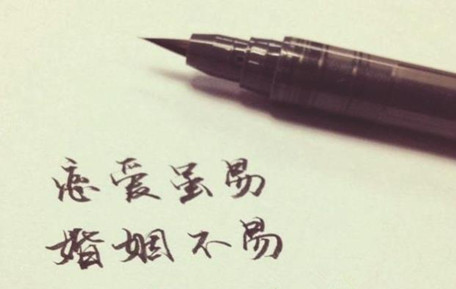 恋爱虽易
婚姻不易